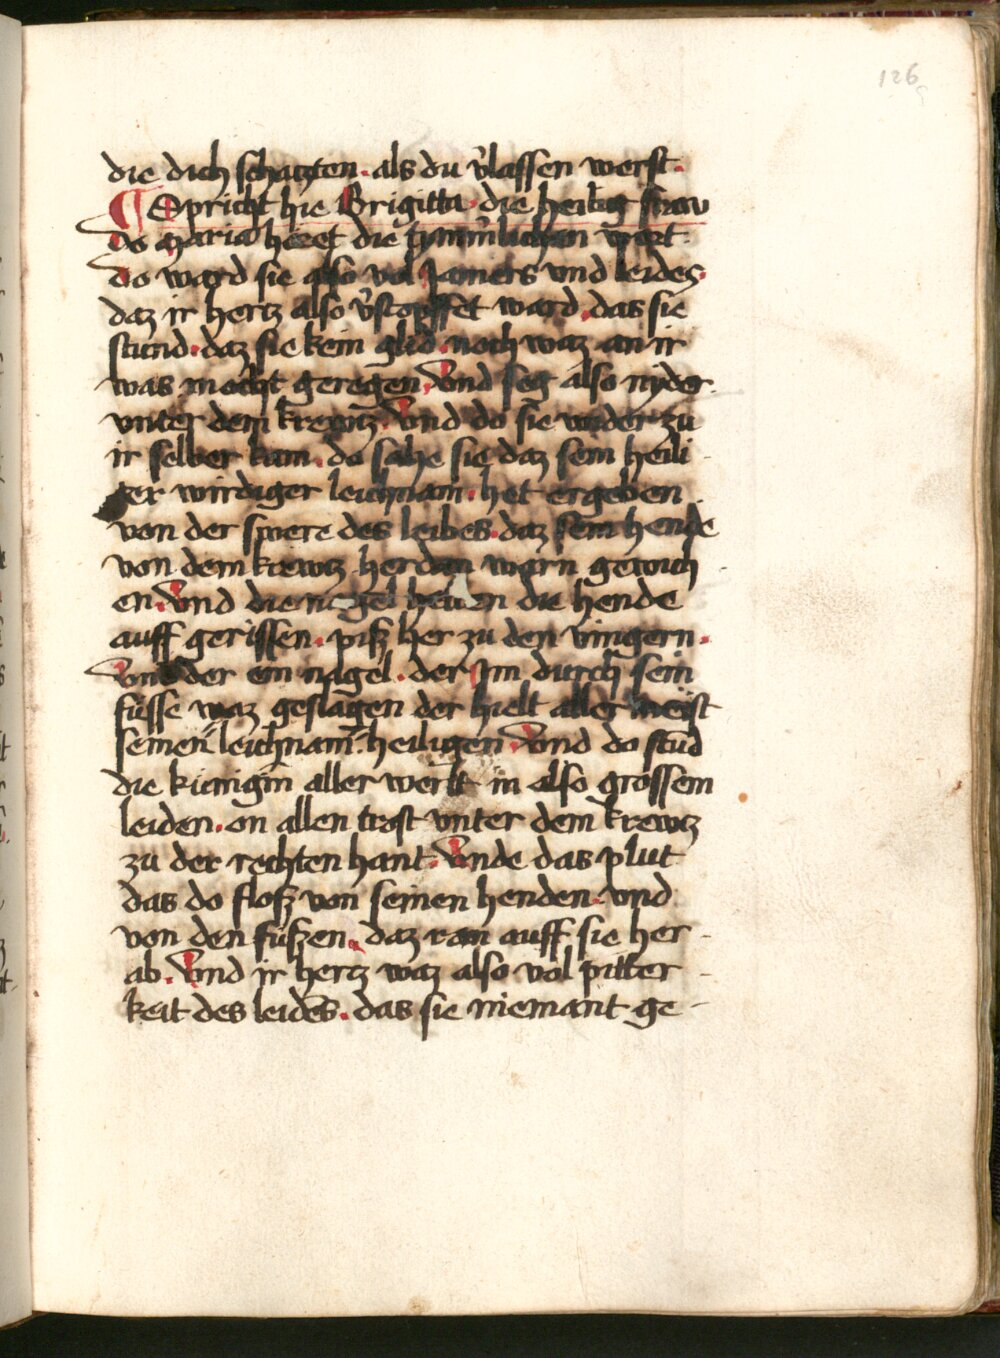 126
die dich schatzten. als du v̉lassen werst.
¶ Spricht hie Brigitta. die heilig fraw
do maria höret die wort.
do ward sie also vol Jamers vnd leides.
daz ir hertz also v̉stopffet ward. das sie
stund. daz sie kein glid. noch waz an ir
was mocht geregen. Vnd seg also nyder
vnter dem krewtz. Vnd do sie wider zu
ir selber kam. do sahe sie daz sein heili
ger wirdiger leichnam. het ergeben
von der swere des leibes. daz sein hende
von dem krewtz herdan warn gewich
en. Vnd die negel die hende
auff gerissen. piß her zu den vingern.
Vnd der ein nagel. der Im durch sein
füsse waz geslagen der hielt aller meist
seinen leichnam. heiligen. Vnd do stůd
die künigin aller werlt in also grossem
leiden. on allen trost vnter dem krewtz
zu der rechten hant. Vnde das plut
das do floß von seinen henden. vnd
von den fußen. daz ran auff sie her
ab. Vnd ir hertz waz also vol pitter
keit des leides. das sie niemant ge